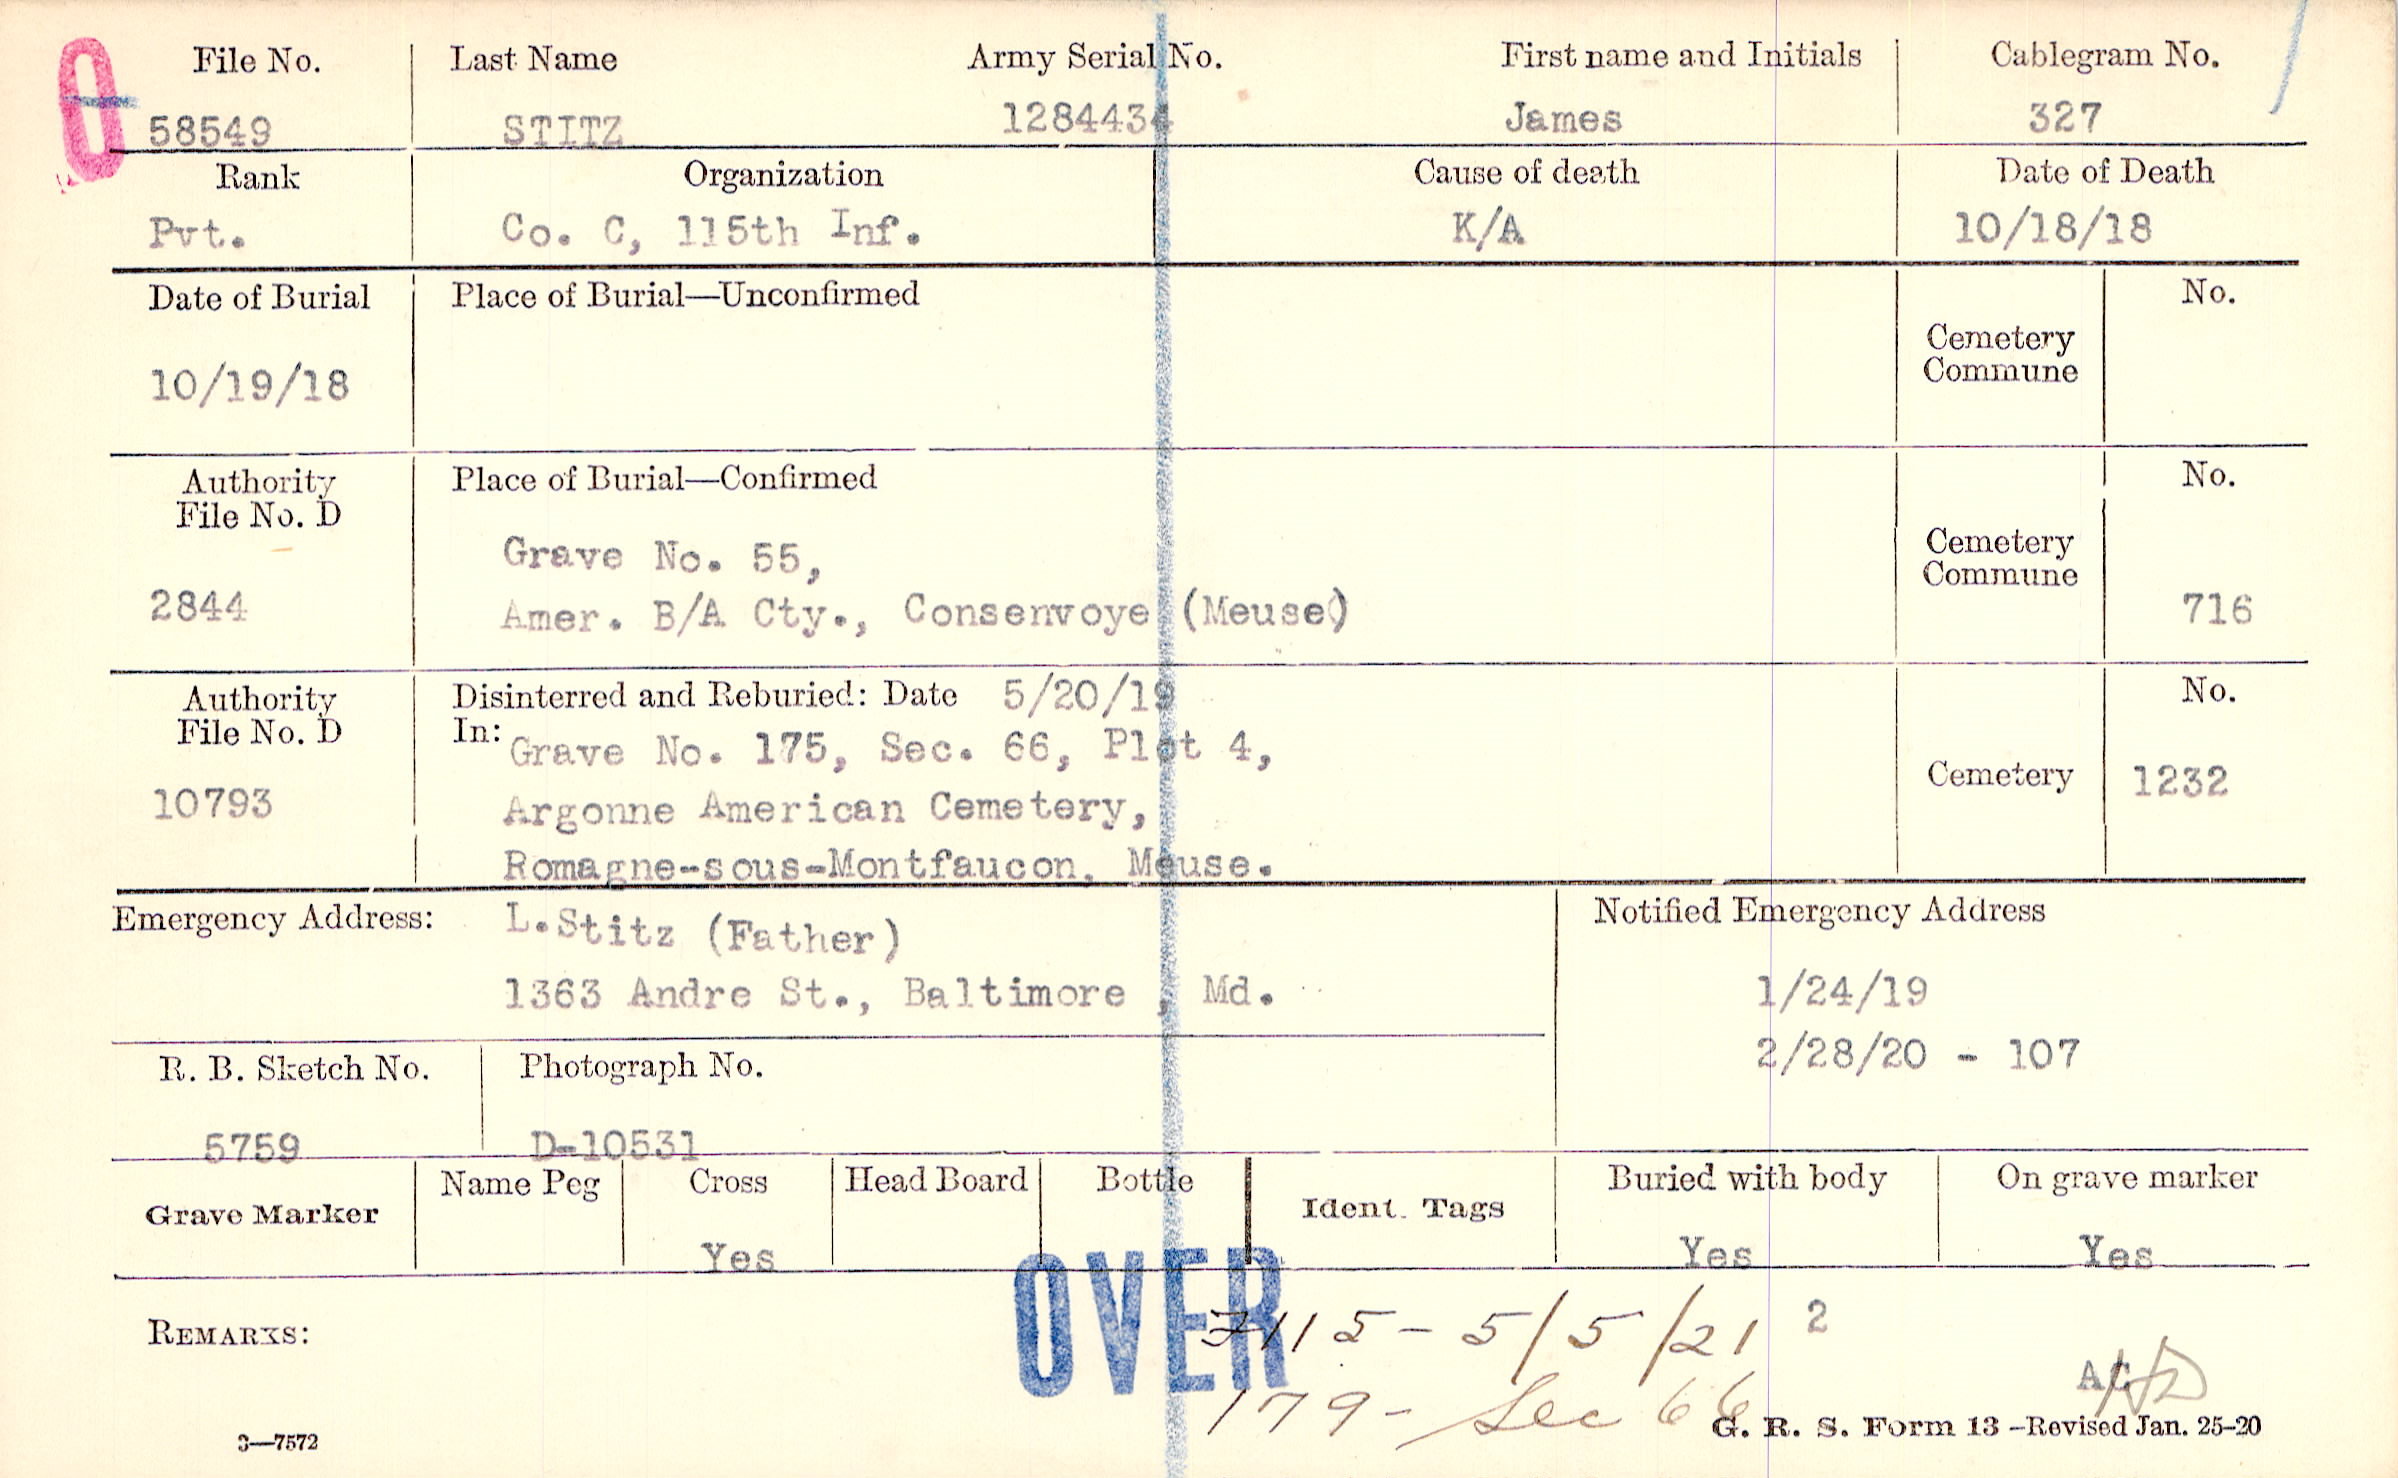 0
File No. Last Name Army Serial No. First name and Initials Cablegram No.
58549 STITZ 1284434 James 327
Rank Organization Cause of death Date of Death
Pvt. Co. C, 115th Inf. K/A 10/18/18
Date of Burial Place of Burial—Unconfirmed No.
Cemetery
Commune
10/19/18
Authority Place of Burial—Confirmed No.
File No. D
Grave No. 55, Cemetery
Commune
2844 Amer. B/A Cty., Consenvoye (Meuse) 716
Authority Disinterred and Reburied: Date 5/20/19 No.
File No. D In: Grave No. 175, Sec. 66, Plot 4,
Cemetery 1232
10793 Argonne American Cemetery,
Romagne-sous-Montfaucon, Meuse.
Emergency Address: L.Stitz (Father) Notified Emergency Address
1363 Andre St., Baltimore , Md. 1/24/19
2/28/20 - 107
R. B. Sketch No. Photograph No.
5759 D-10531
Grave Marker Name Peg Cross Head Board Bottle Ident. Tags Buried with body On grave marker
Yes Yes Yes
OVER
REMARKS: 7115 - 5/5/21 2
AC
179 - Sec 66
3—7572 G. R. S. Form 13 -Revised Jan. 25-20